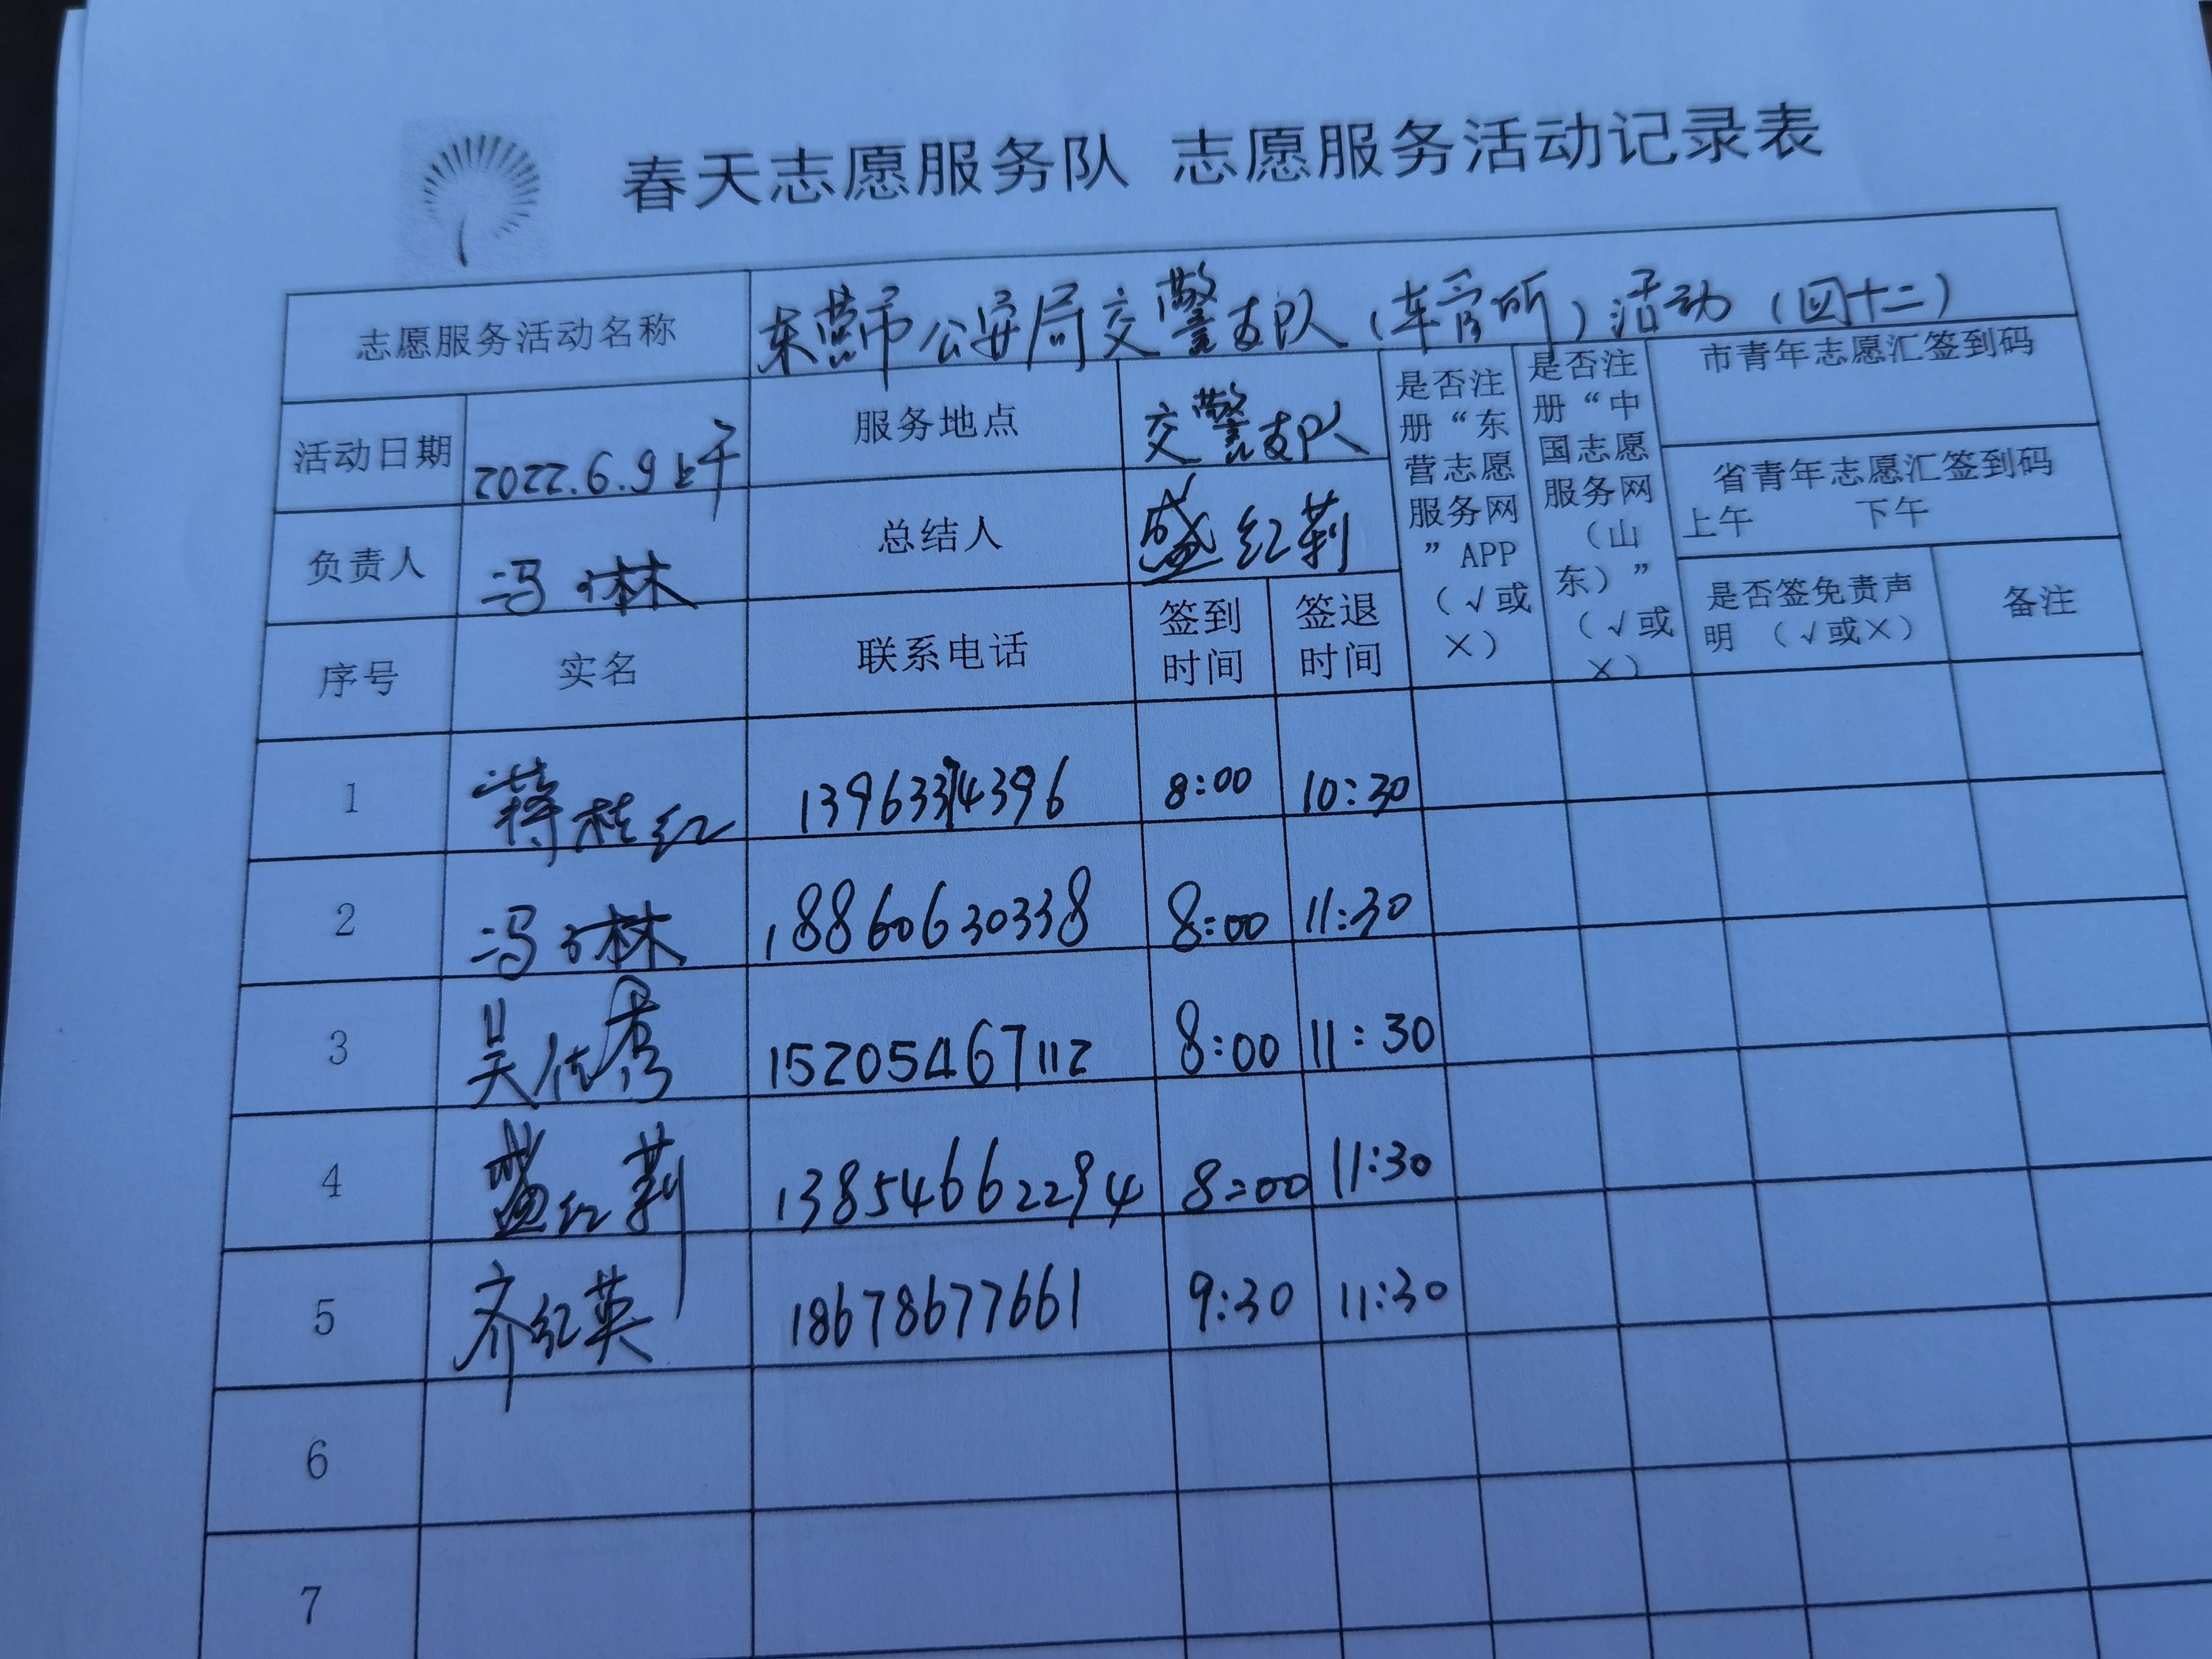 春天志愿服务队 志愿服务活动记录表
志愿服务活动名称 东营市公安局交警支队(车管所)活动(四十二)
活动日期 2022.6.9上午 服务地点 交警支队
是否注册“东营志愿服务网”APP(√或×)
是否注册“中国志愿服务网(山东)”(√或×)
市青年志愿汇签到码
省青年志愿汇签到码
上午 下午
负责人 冯林 总结人 盛红莉
是否签免责声明 (√或×) 备注
序号 实名 联系电话 签到时间 签退时间
1 蒋桂红 8:00 10:30
2 冯林 18860630338 8:00 11:30
3 吴秀 15205467112 8:00 11:30
4 盛红莉 13854662294 8:00 11:30
5 齐红英 18678677661 9:30 11:30
6
7